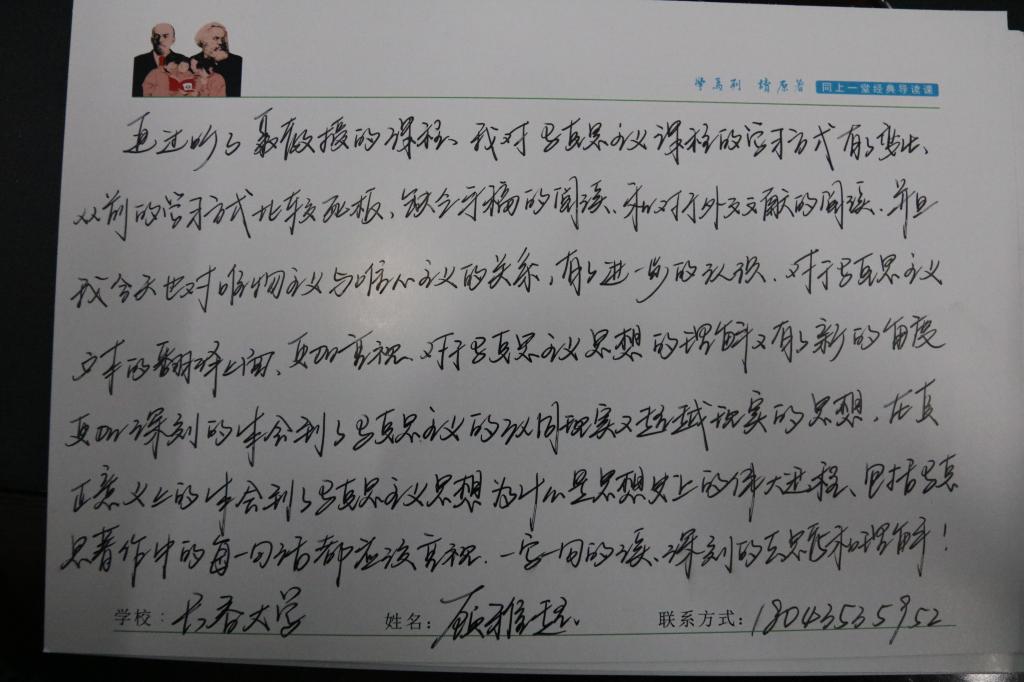 学马列 读原著 同上一堂经典导读课
通过听了聂教授的课程、我对马克思主义课程的学习方式有了变化、
从前的学习方式比较死板、缺乏手稿的阅读、和对于外文文献的阅读、并且
我今天也对唯物主义与唯心主义的关系,有了进一步的认识.对于马克思主义
文本的翻译上面、更加重视.对于马克思主义思想的理解又有了新的角度
更加深刻的体会到了马克思主义的认同现实又超越现实的思想.在真
正意义上的体会到了马克思主义思想为什么是思想史上的伟大进程、包括马克
思著作中的每一句话都应该重视.一字一句的读、深刻的去思考和理解!
学校: 长春大学 姓名: 顾雅 联系方式: 18043535952